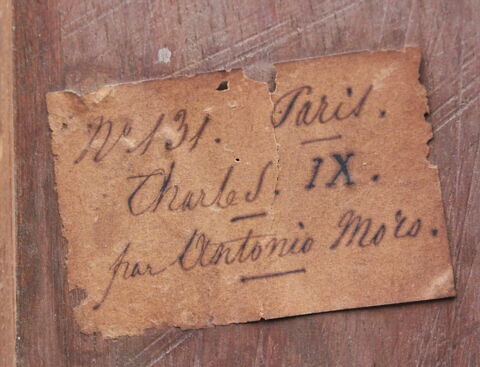 No 131. Paris.
Charles. IX.
par Antonio Moro.